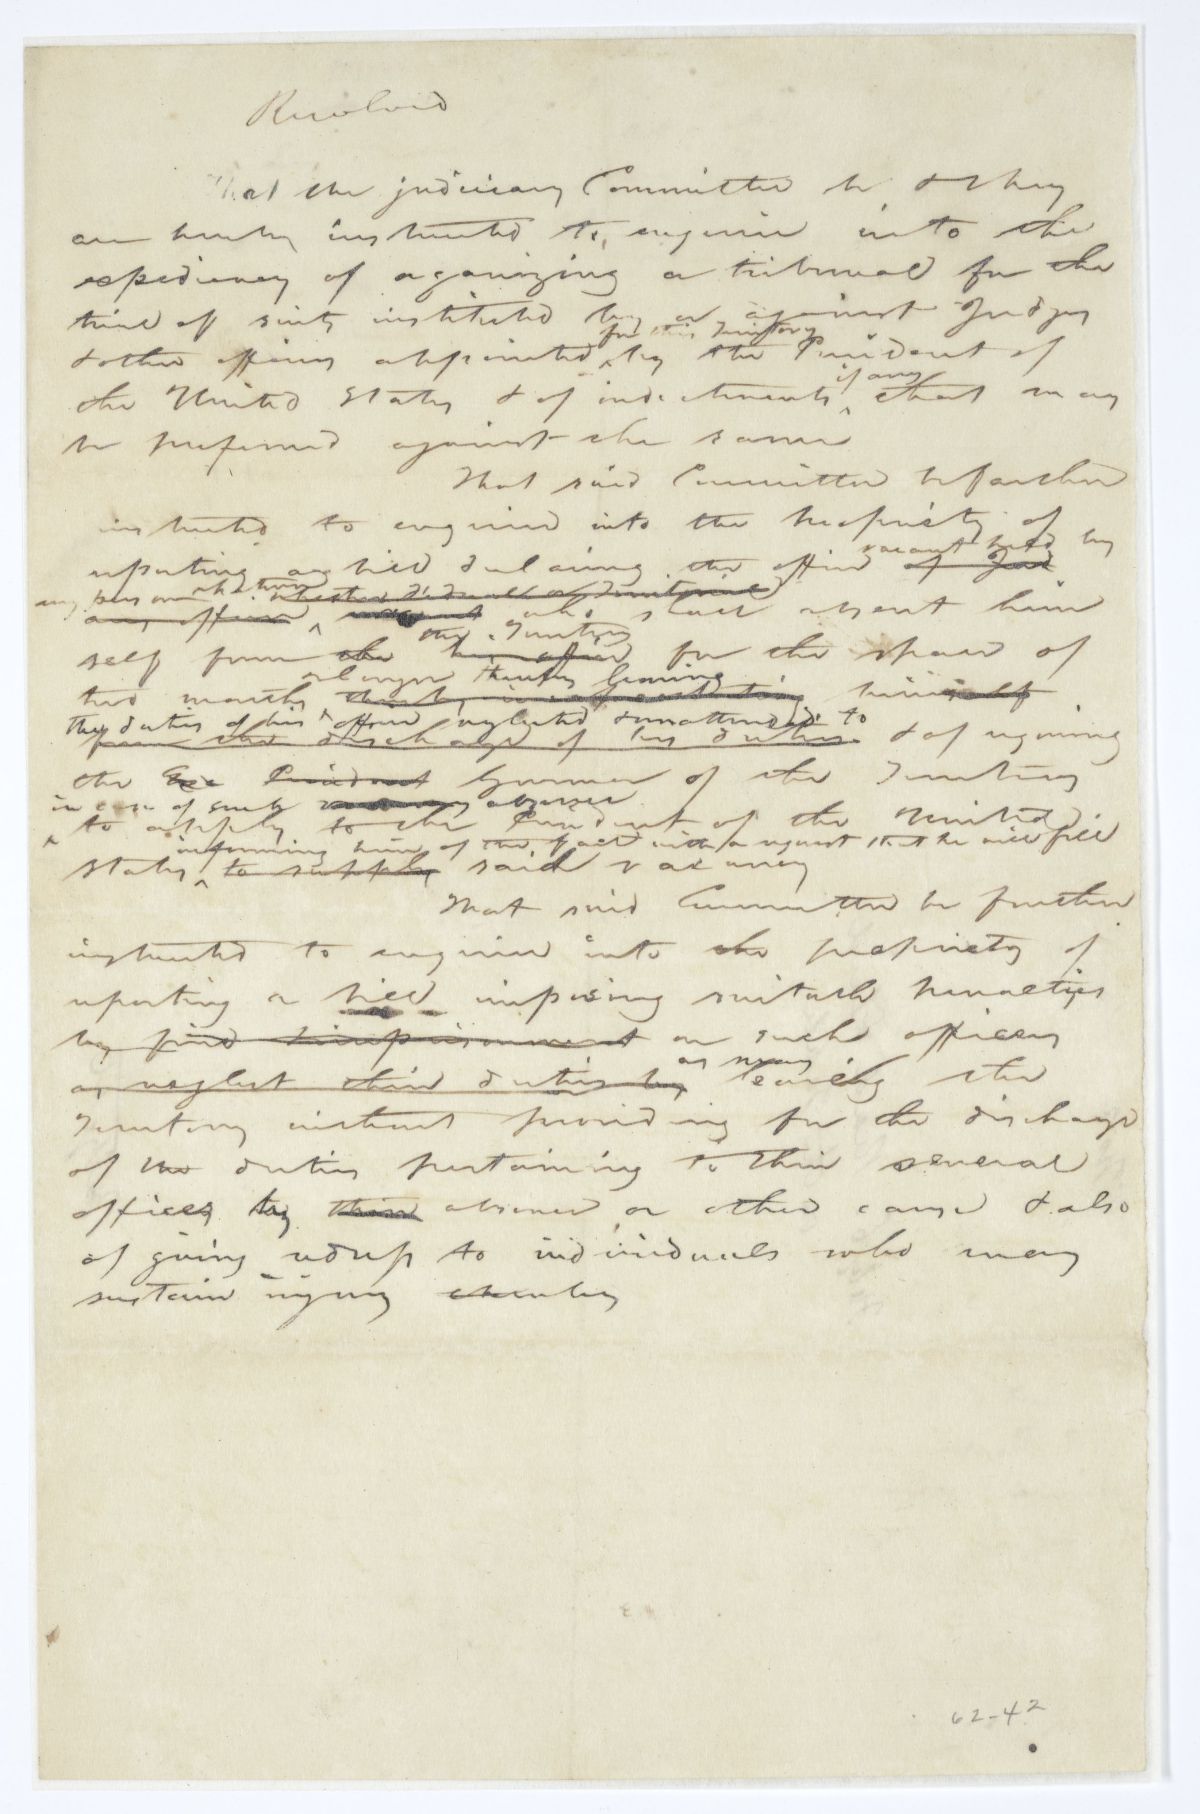 Resolved
That the judiciary Committee be & they
are hereby instructed to enquire into the
expediency of organizing a tribunal for the
trial of suits instituted by or against Judges
for this Territory
& other officers appointed by the President of
if any
the United States & of indictments that may
be preferred against the same
That said Committee be farther
instructed to enquire into the propriety of
vacant held by
reporting a bill declaring the office of Jud
any person whether judicial or
any officer who shall absent him
the Territory
self from the his office for the space of
or longer thereby leaving
two months himself
the duties of his office neglected & unattended to
from the discharge of his duties & of requiring
the Exe President Governor of the Territory
in case of such vacancy absence
to apply to the President of the United
informing him of the fact with a request that he will fill
States to supply said vacancy
That said Committee be further
instructed to enquire into the propriety of
reporting a bill imposing suitable penalties
by fine & imprisonment on such officers
as may
as neglect their duties by leaving the
Territory without providing for the discharge
of the duties pertaining to their several
offices by their absence or other cause & also
of giving redress to individuals who may
sustain injury thereby
62-42